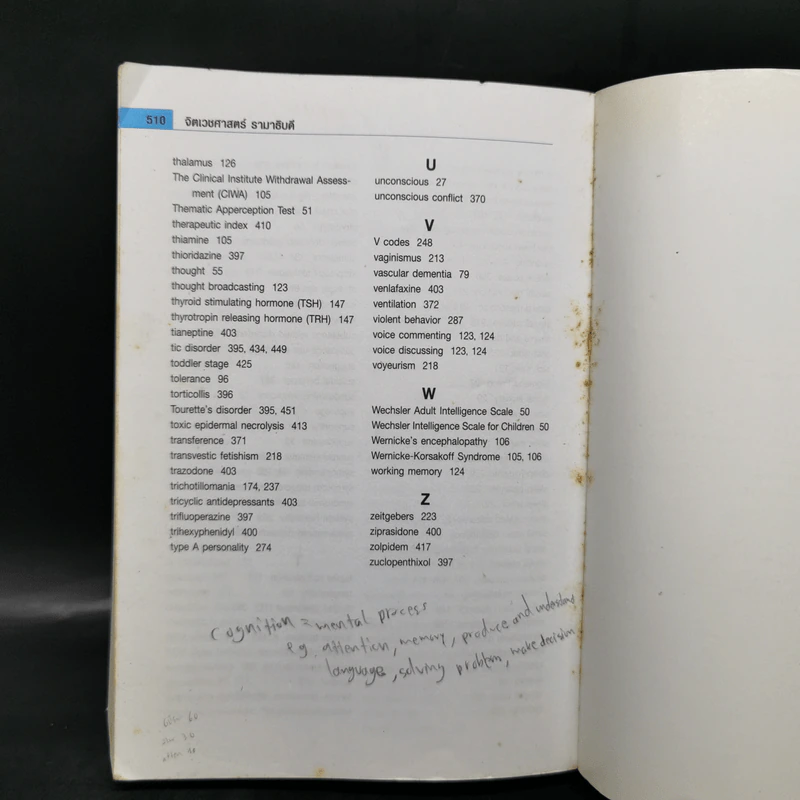 510 จิตเวชศาสตร์ รามาธิบดี
thalamus 126
The Clinical Institute Withdrawal Assess-
ment (CIWA) 105
Thematic Apperception Test 51
therapeutic index 410
thiamine 105
thioridazine 397
thought 55
thought broadcasting 123
thyroid stimulating hormone (TSH) 147
thyrotropin releasing hormone (TRH) 147
tianeptine 403
tic disorder 395, 434, 449
toddler stage 425
tolerance 96
torticollis 396
Tourette's disorder 395, 451
toxic epidermal necrolysis 413
transference 371
transvestic fetishism 218
trazodone 403
trichotillomania 174, 237
tricyclic antidepressants 403
trifluoperazine 397
trihexyphenidyl 400
type A personality 274
U
unconscious 27
unconscious conflict 370
V
V codes 248
vaginismus 213
vascular dementia 79
venlafaxine 403
ventilation 372
violent behavior 287
voice commenting 123, 124
voice discussing 123, 124
voyeurism 218
W
Wechsler Adult Intelligence Scale 50
Wechsler Intelligence Scale for Children 50
Wernicke's encephalopathy 106
Wernicke-Korsakoff Syndrome 105, 106
working memory 124
Z
zeitgebers 223
ziprasidone 400
zolpidem 417
zuclopenthixol 397
cognition = mental process
eg. attention, memory, produce and understand
language, solving problem, make decision